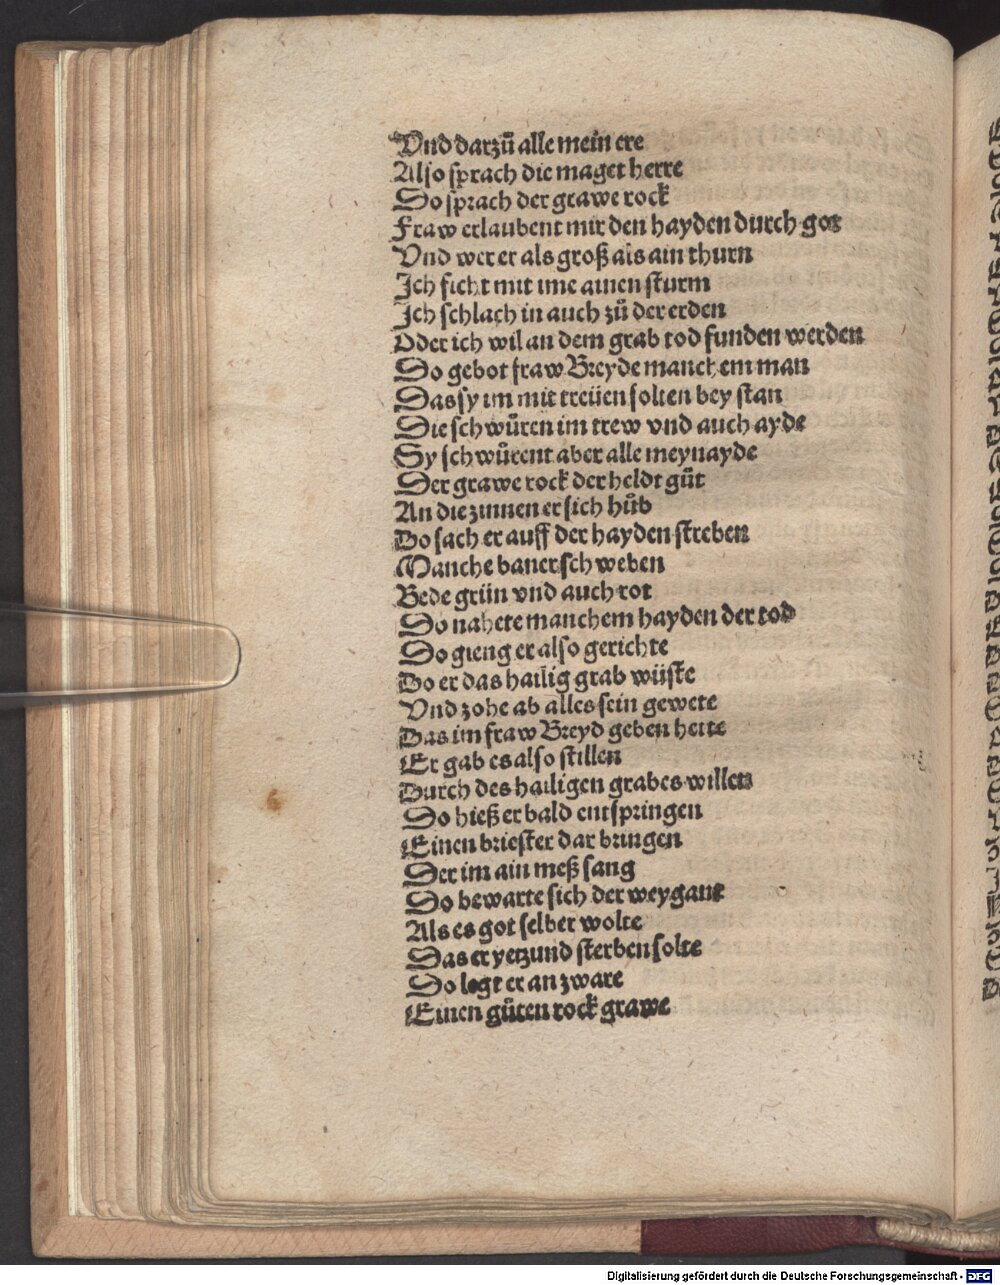 Vnd darzů alle mein ere
Also sprach die maget herre
Do sprach der grawe rock
Fraw erlaubent mir den hayden durch got
Vnd wer er als groß als ain thurn
Ich ficht mit ime ainen sturm
Ich schlach in auch zů der erden
Oder ich wil an dem grab tod funden werden
Do gebot fraw Breyde manchem man
Das sy im mit treüen solten bey stan
Die schwůren im trew vnd auch ayde
Sy schwůrent aber alle meynayde
Der grawe rock der heldt gůt
An die zinnen er sich hůb
Do sach er auff der hayden streben
Manche baner schweben
Bede grün vnd auch rot
Do nahete manchem hayden der tod
Do gieng er also gerichte
Do er das hailig grab wüste
Vnd zohe ab alles sein gewete
Das im fraw Breyd geben hette
Er gab es also stillen
Durch des hailigen grabes willen
Do hieß er bald entspringen
Einen briester dar bringen
Der im ain meß sang
Do bewarte sich der weygant
Als es got selber wolte
Das er yetzund sterben solte
Do legt er an zware
Einen gůten rock grawe
Digitalisierung gefördert durch die Deutsche Forschungsgemeinschaft - DFG